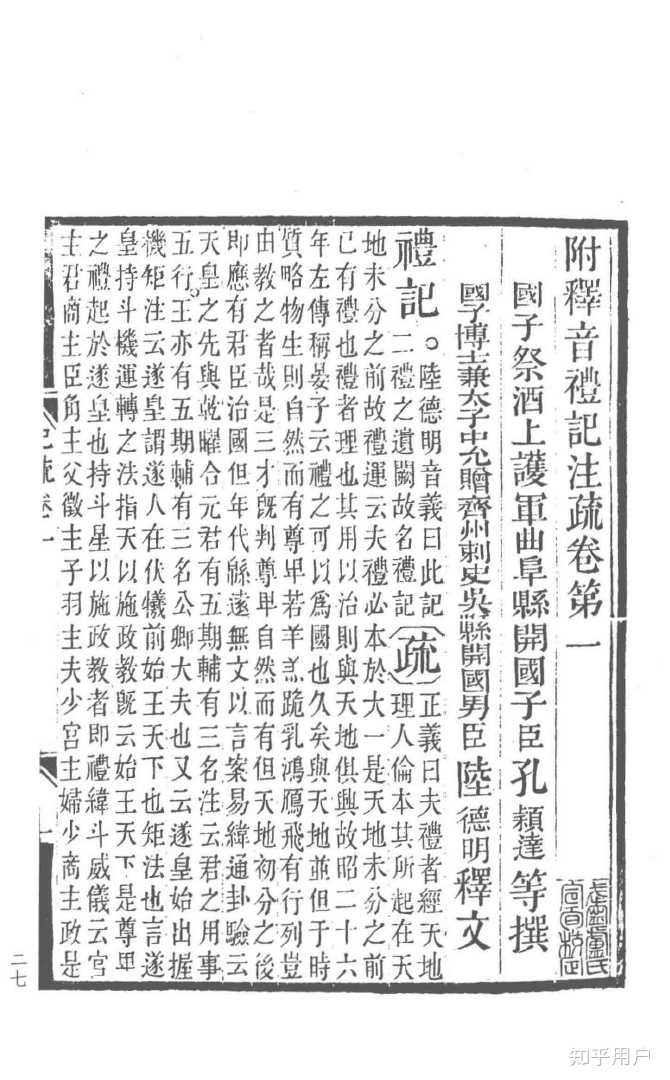 附釋音禮記注疏卷第一
國子祭酒上護軍曲阜縣開國子臣孔穎達等撰
國子博士兼太子中允贈齊州刺史吳縣開國男臣陸德明釋文
禮記○陸德明音義曰此記二禮之遺闕故名禮記疏正義曰夫禮者經天地理人倫本其所起在天
地未分之前故禮運云夫禮必本於大一是天地未分之前
已有禮也禮者理也其用以治則與天地俱興故昭二十六
年左傳稱晏子云禮之可以爲國也久矣與天地並但于時
質略物生則自然而有尊卑若羊羔跪乳鴻鴈飛有行列豈
由教之者哉是三才旣判尊卑自然而有但天地初分之後
即應有君臣治國但年代緜遠無文以言案易緯通卦驗云
天皇之先與乾曜合元君有五期輔有三名注云君之用事
五行王亦有五期輔有三名公卿大夫也又云遂皇始出握
機矩注云遂皇謂遂人在伏犧前始王天下也矩法也言遂
皇持斗機運轉之法指天以施政教旣云始王天下是尊卑
之禮起於遂皇也持斗星以施政教者即禮緯斗威儀云宮
主君商主臣角主父徵主子羽主夫少宮主婦少商主政是
疏卷一
二七
知乎用户